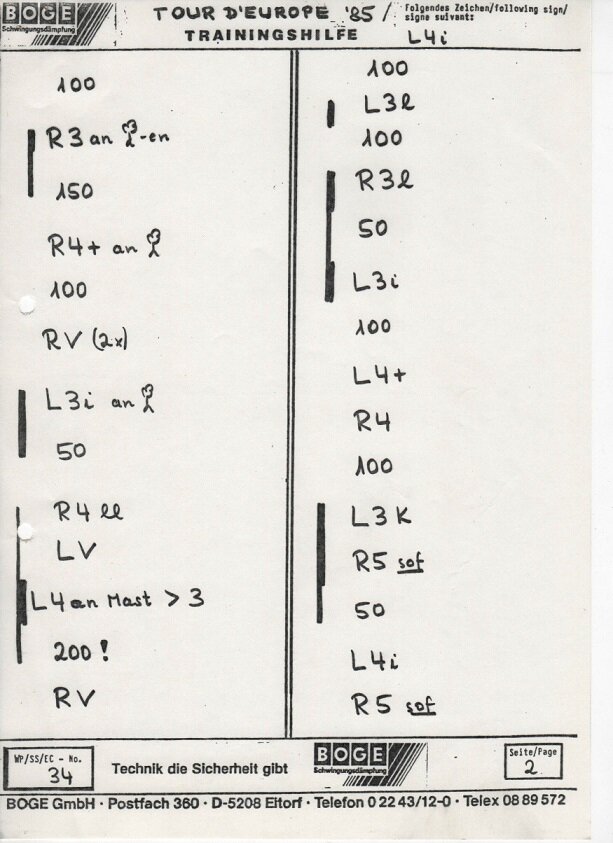 BOGE
Schwingungsdämpfung
TOUR D'EUROPE '85 /
TRAININGSHILFE
Folgendes Zeichen/following sign/
signe suivant:
L4i
100
R3 an -en
150
R4+ an
100
RV (2x)
L3i an
50
R4 ll
LV
L4 an Mast > 3
200 !
RV
100
L3l
100
R3l
50
L3i
100
L4+
R4
100
L3 K
R5 sof
50
L4i
R5 sof
WP/SS/EC - No.
34
Technik die Sicherheit gibt
BOGE
Schwingungsdämpfung
Seite/Page
2
BOGE GmbH · Postfach 360 · D-5208 Eitorf · Telefon 0 22 43/12-0 · Telex 08 89 572